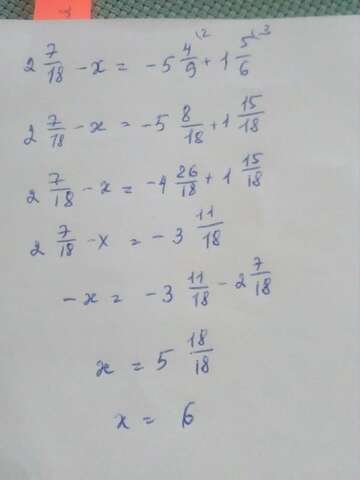 2 7/18 - x = -5 4/9 \2 + 1 5/6 \3
2 7/18 - x = -5 8/18 + 1 15/18
2 7/18 - x = -4 26/18 + 1 15/18
2 7/18 - x = -3 11/18
-x = -3 11/18 - 2 7/18
x = 5 18/18
x = 6